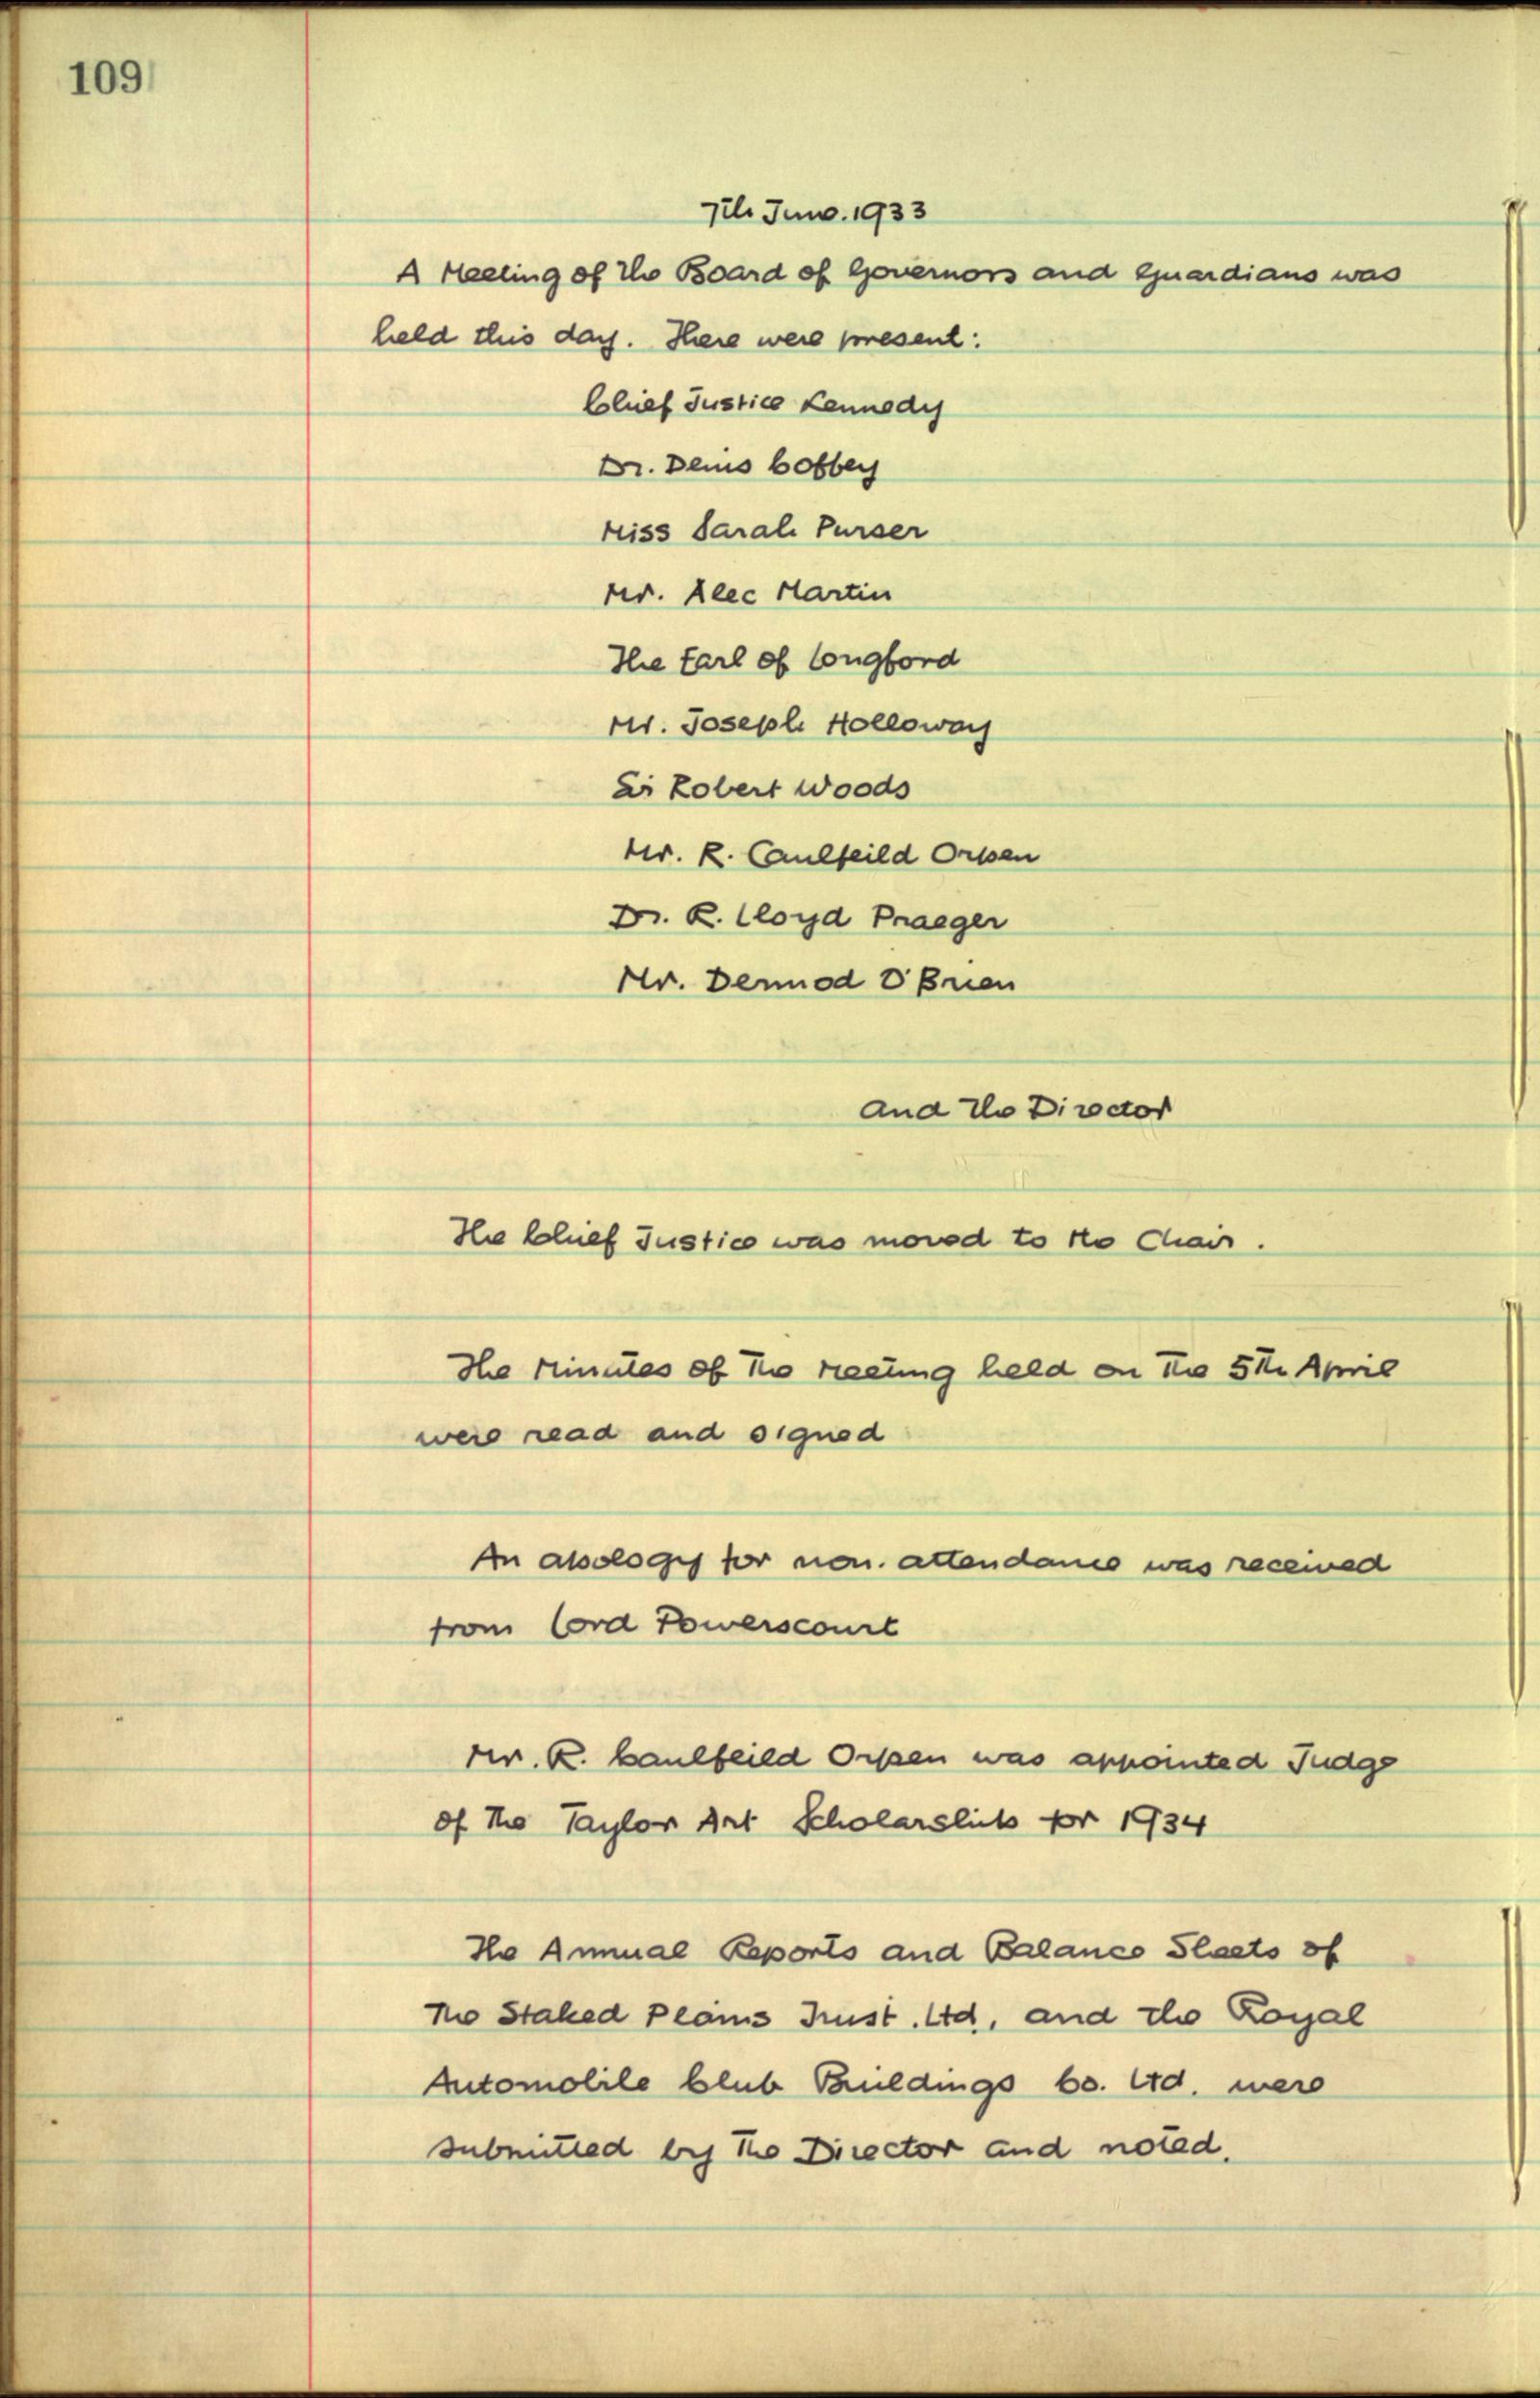 109
7th June. 1933
A Meeting of the Board of Governors and Guardians was
held this day. There were present:
Chief Justice Kennedy
Dr. Denis Coffey
Miss Sarah Purser
Mr. Alec Martin
The Earl of Longford
Mr. Joseph Holloway
Sir Robert Woods
Mr. R. Caulfeild Orpen
Dr. R. Lloyd Praeger
Mr. Dermod O'Brien
and the Director
The Chief Justice was moved to the Chair.
The Minutes of the Meeting held on the 5th April
were read and signed
An apology for non. attendance was received
from Lord Powerscourt
Mr. R. Caulfeild Orpen was appointed Judge
of the Taylor Art Scholarships for 1934
The Annual Reports and Balance Sheets of
the Staked Plains Trust. Ltd, and the Royal
Automobile Club Buildings Co. Ltd. were
submitted by the Director and noted.